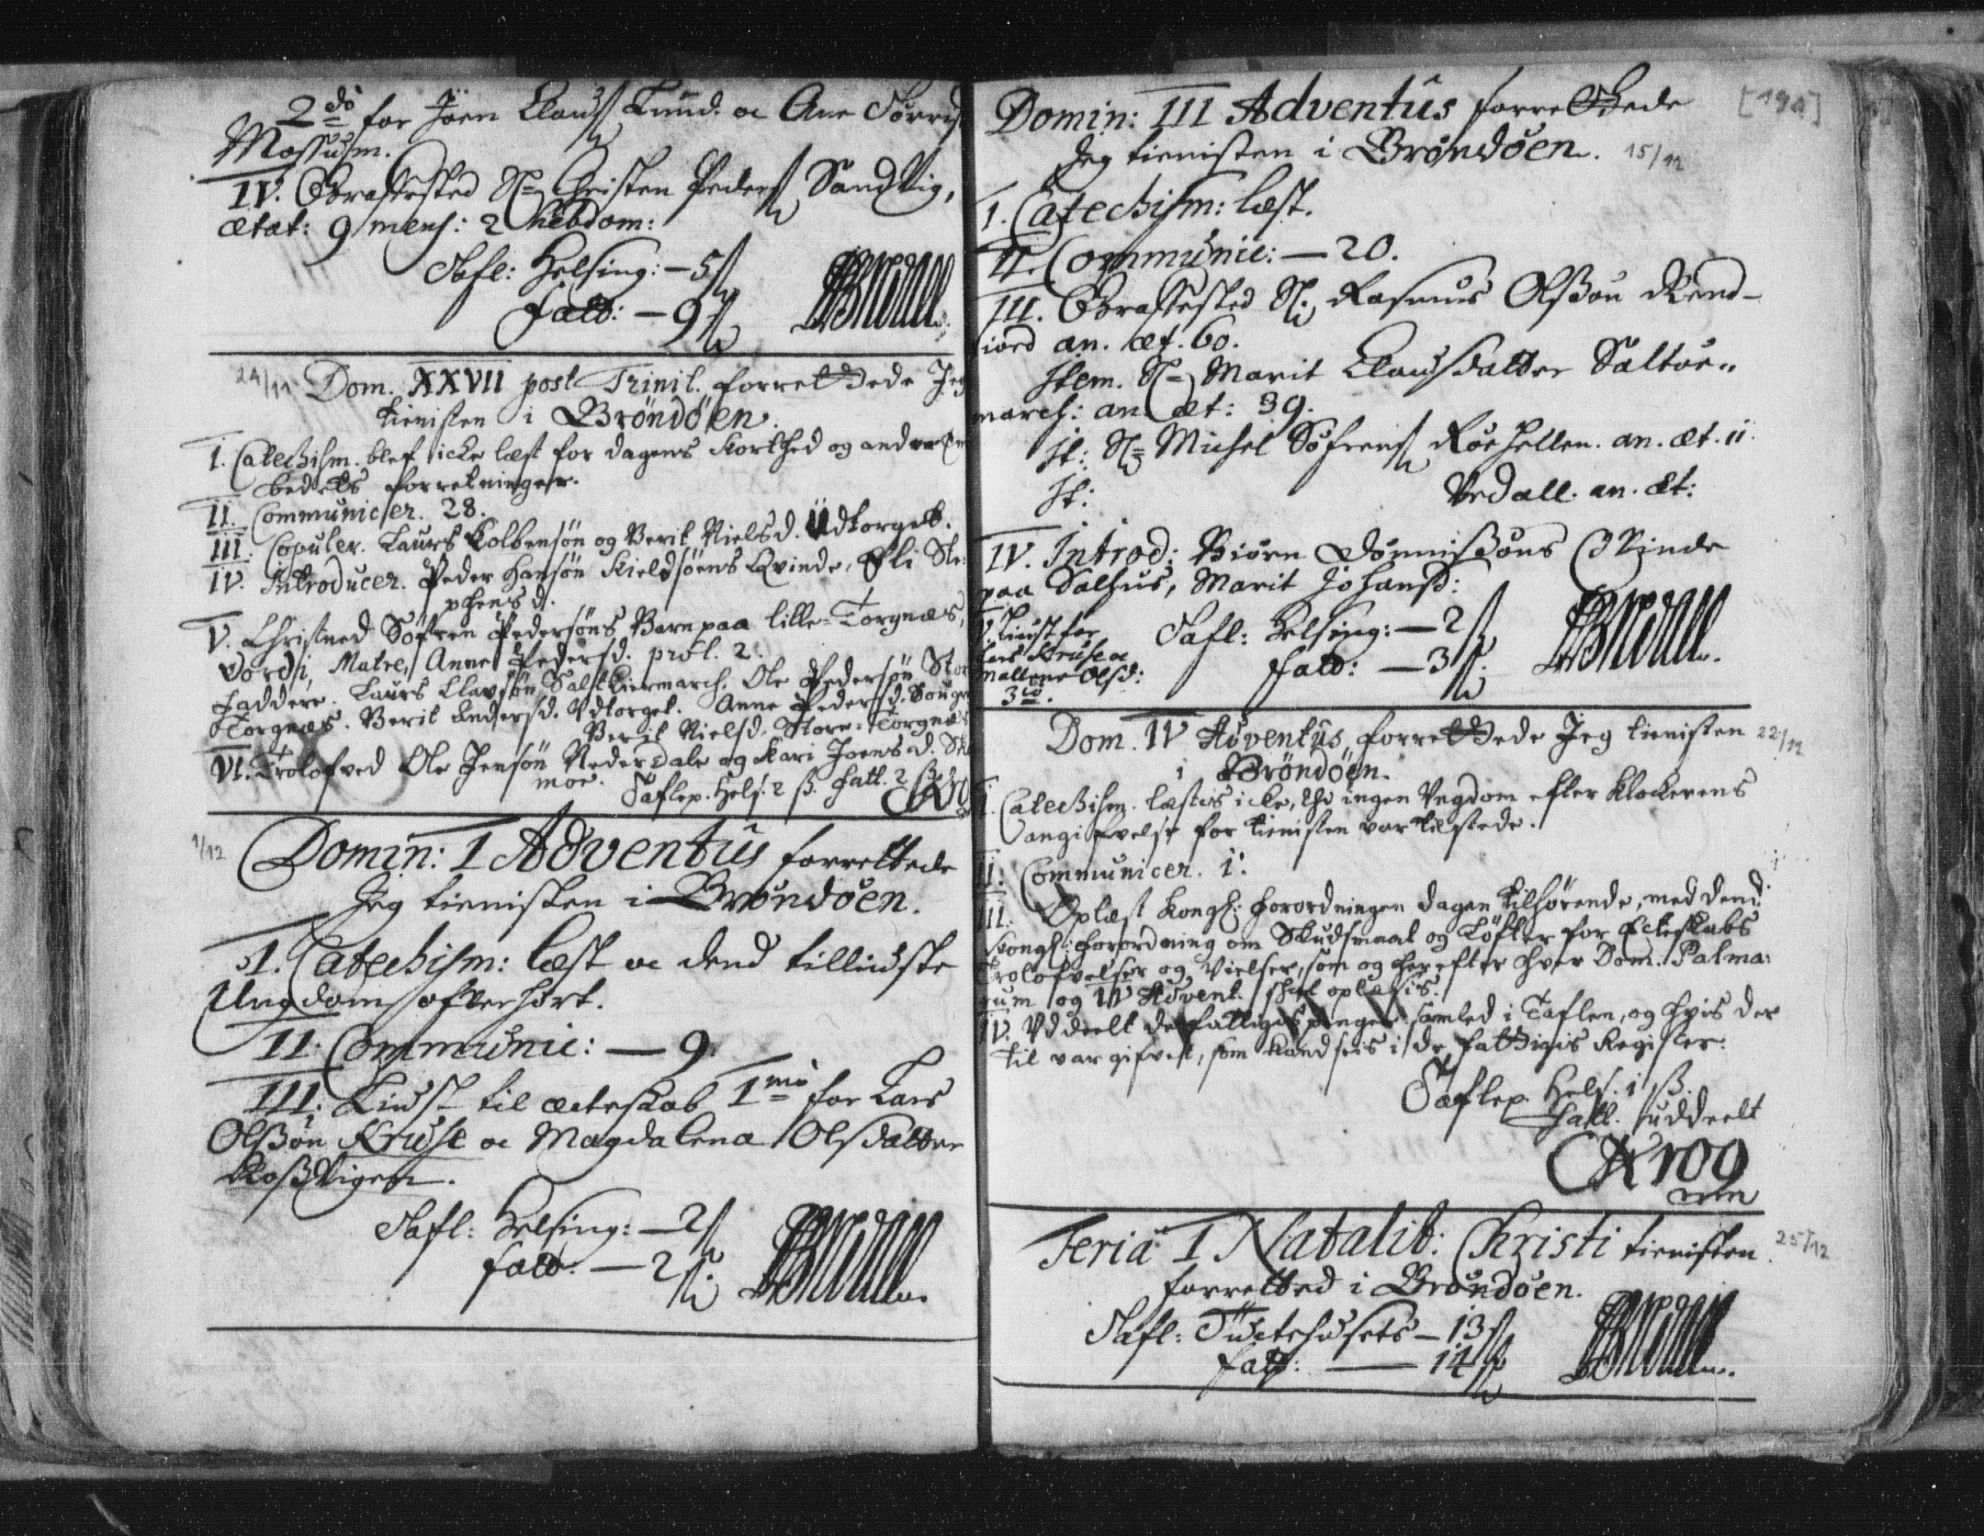 2do for Joen Clausß Tiend oc Ane
Mossusm.
IV. Graffæsted Sl. Christen Pedersß Sandvig,
ætat: 9 mens: 2 hebdom:
Tafl: Helsing: - 5ß
fatt: - 9ß
24/11 Dom. XXVII post Trinit. forrettede Jeg
tienisten i Brøndøen.
I. Catechism. blef icke læst for dagens korthed og andre
forretninger.
II. Communicer. 28.
III. Copuler. Laurs Kolbensøn og Berit Nielsd. Udtorget.
IV. Introducer. Peder Hansøn Kieldsøens Qvinde, Eli Ste-
phensd.
V. Christned Söfren Pedersøns Barn paa lille-Torgnæs,
Matre, Anne Pedersd. prol. 2.
Faddere. Laurs Clavsøn Ole Pedersøn Stor
Torgnæs. Berit Andersd. Vdtorget. Anne Pedersd.
Berit Nielsd. Store-Torgnæs
VI. Trolofved Ole Jensøn Nederdale og Kari Joensd.
moe. Taflep. Hels: 2 ß. Fatt. 2 ß
1/12 Domin: I Adventûs forrettede
Jeg tienisten i Brøndøen.
I. Catechism: læst oc dend tillindste
Ungdom ofverhört.
II. Communic: - 9.
III. Liust til ecteskab 1mo for Lars
Olßøn Kruse oc Magdalena Olsdatter
Koßvigen.
Tafl: Helsing: - 2ß
fatt: - 2ß.
Domin: III Adventûs forrettede [194]
Jeg tienisten i Brøndøen. 15/12
I. Catechism: læst.
II. Communic: - 20.
III. Graffæsted Sl. Rasmus Olßøn
an. æt. 60.
Item. Sl. Marit Clausdatter Saltøe-
march: an. æt: 39.
It: Sl. Michel Söfrensß Røehellen. an. æt. 11.
It: Vedall. an. æt:
IV. Introd: Biørn Dønnißøns Qvinde
paa Salhus, Marit Johansd:
V. Liust for
Lars Kruse oc
Mallene Olsd:
3io.
Tafl: Helsing: - 2ß
fatt: - 3ß.
Dom. IV Adventûs forrettede Jeg tienisten 22/12
i Brøndöen.
I. Catechism. læstis icke, thi ingen Vngdom efter Klockerens
angifvelse for tienisten var tilstede.
II. Communicer. 1.
III. Oplæst Kongl: Forordningen dagen tilhørende, med dend
Kongl: Forordning om Skudsmaal og Løfter for Ecteskabs
Trolofvelser og Vielser, som og herefter hver Dom. Palma:
rum og IV Advent. skal oplæsis.
IV. Vddeelt de fattigis penger samled i Taflen, og hvis der
til var gifvet, som kand seis i de fattigis Register.
Taflep. Hels: 1 ß.
Fatt. uddeelt
Krog
mm
Feria I Natalit: Christi tienisten 25/12
forretted i Brøndøen.
Tafl: Tuctehusets - 13ß
fatt: - 14ß